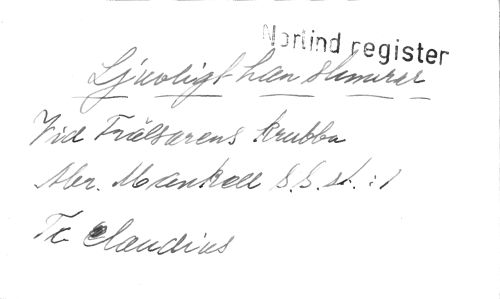 Norlind register
Ljuvligt han slumrar
Vid Frälsarens krubba
Abr. Mankell S.S. st. :1
Tc Claudius